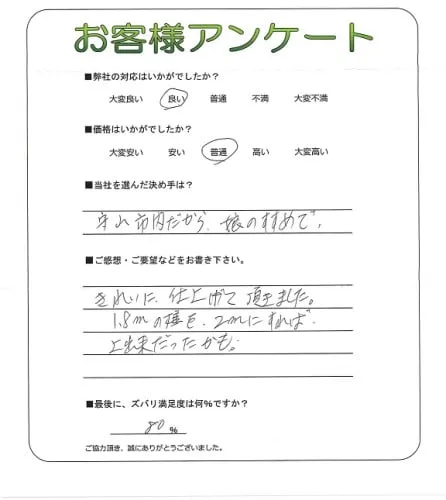 お客様アンケート
■弊社の対応はいかがでしたか？
大変良い 良い 普通 不満 大変不満
■価格はいかがでしたか？
大変安い 安い 普通 高い 大変高い
■当社を選んだ決め手は？
市内だから、娘のすすめで、
■ご感想・ご要望などをお書き下さい。
きれいに仕上げて頂きました。
1.8mの塀を、2mにすれば、
上出来だったかも。
■最後に、ズバリ満足度は何％ですか？
80 %
ご協力頂き、誠にありがとうございました。